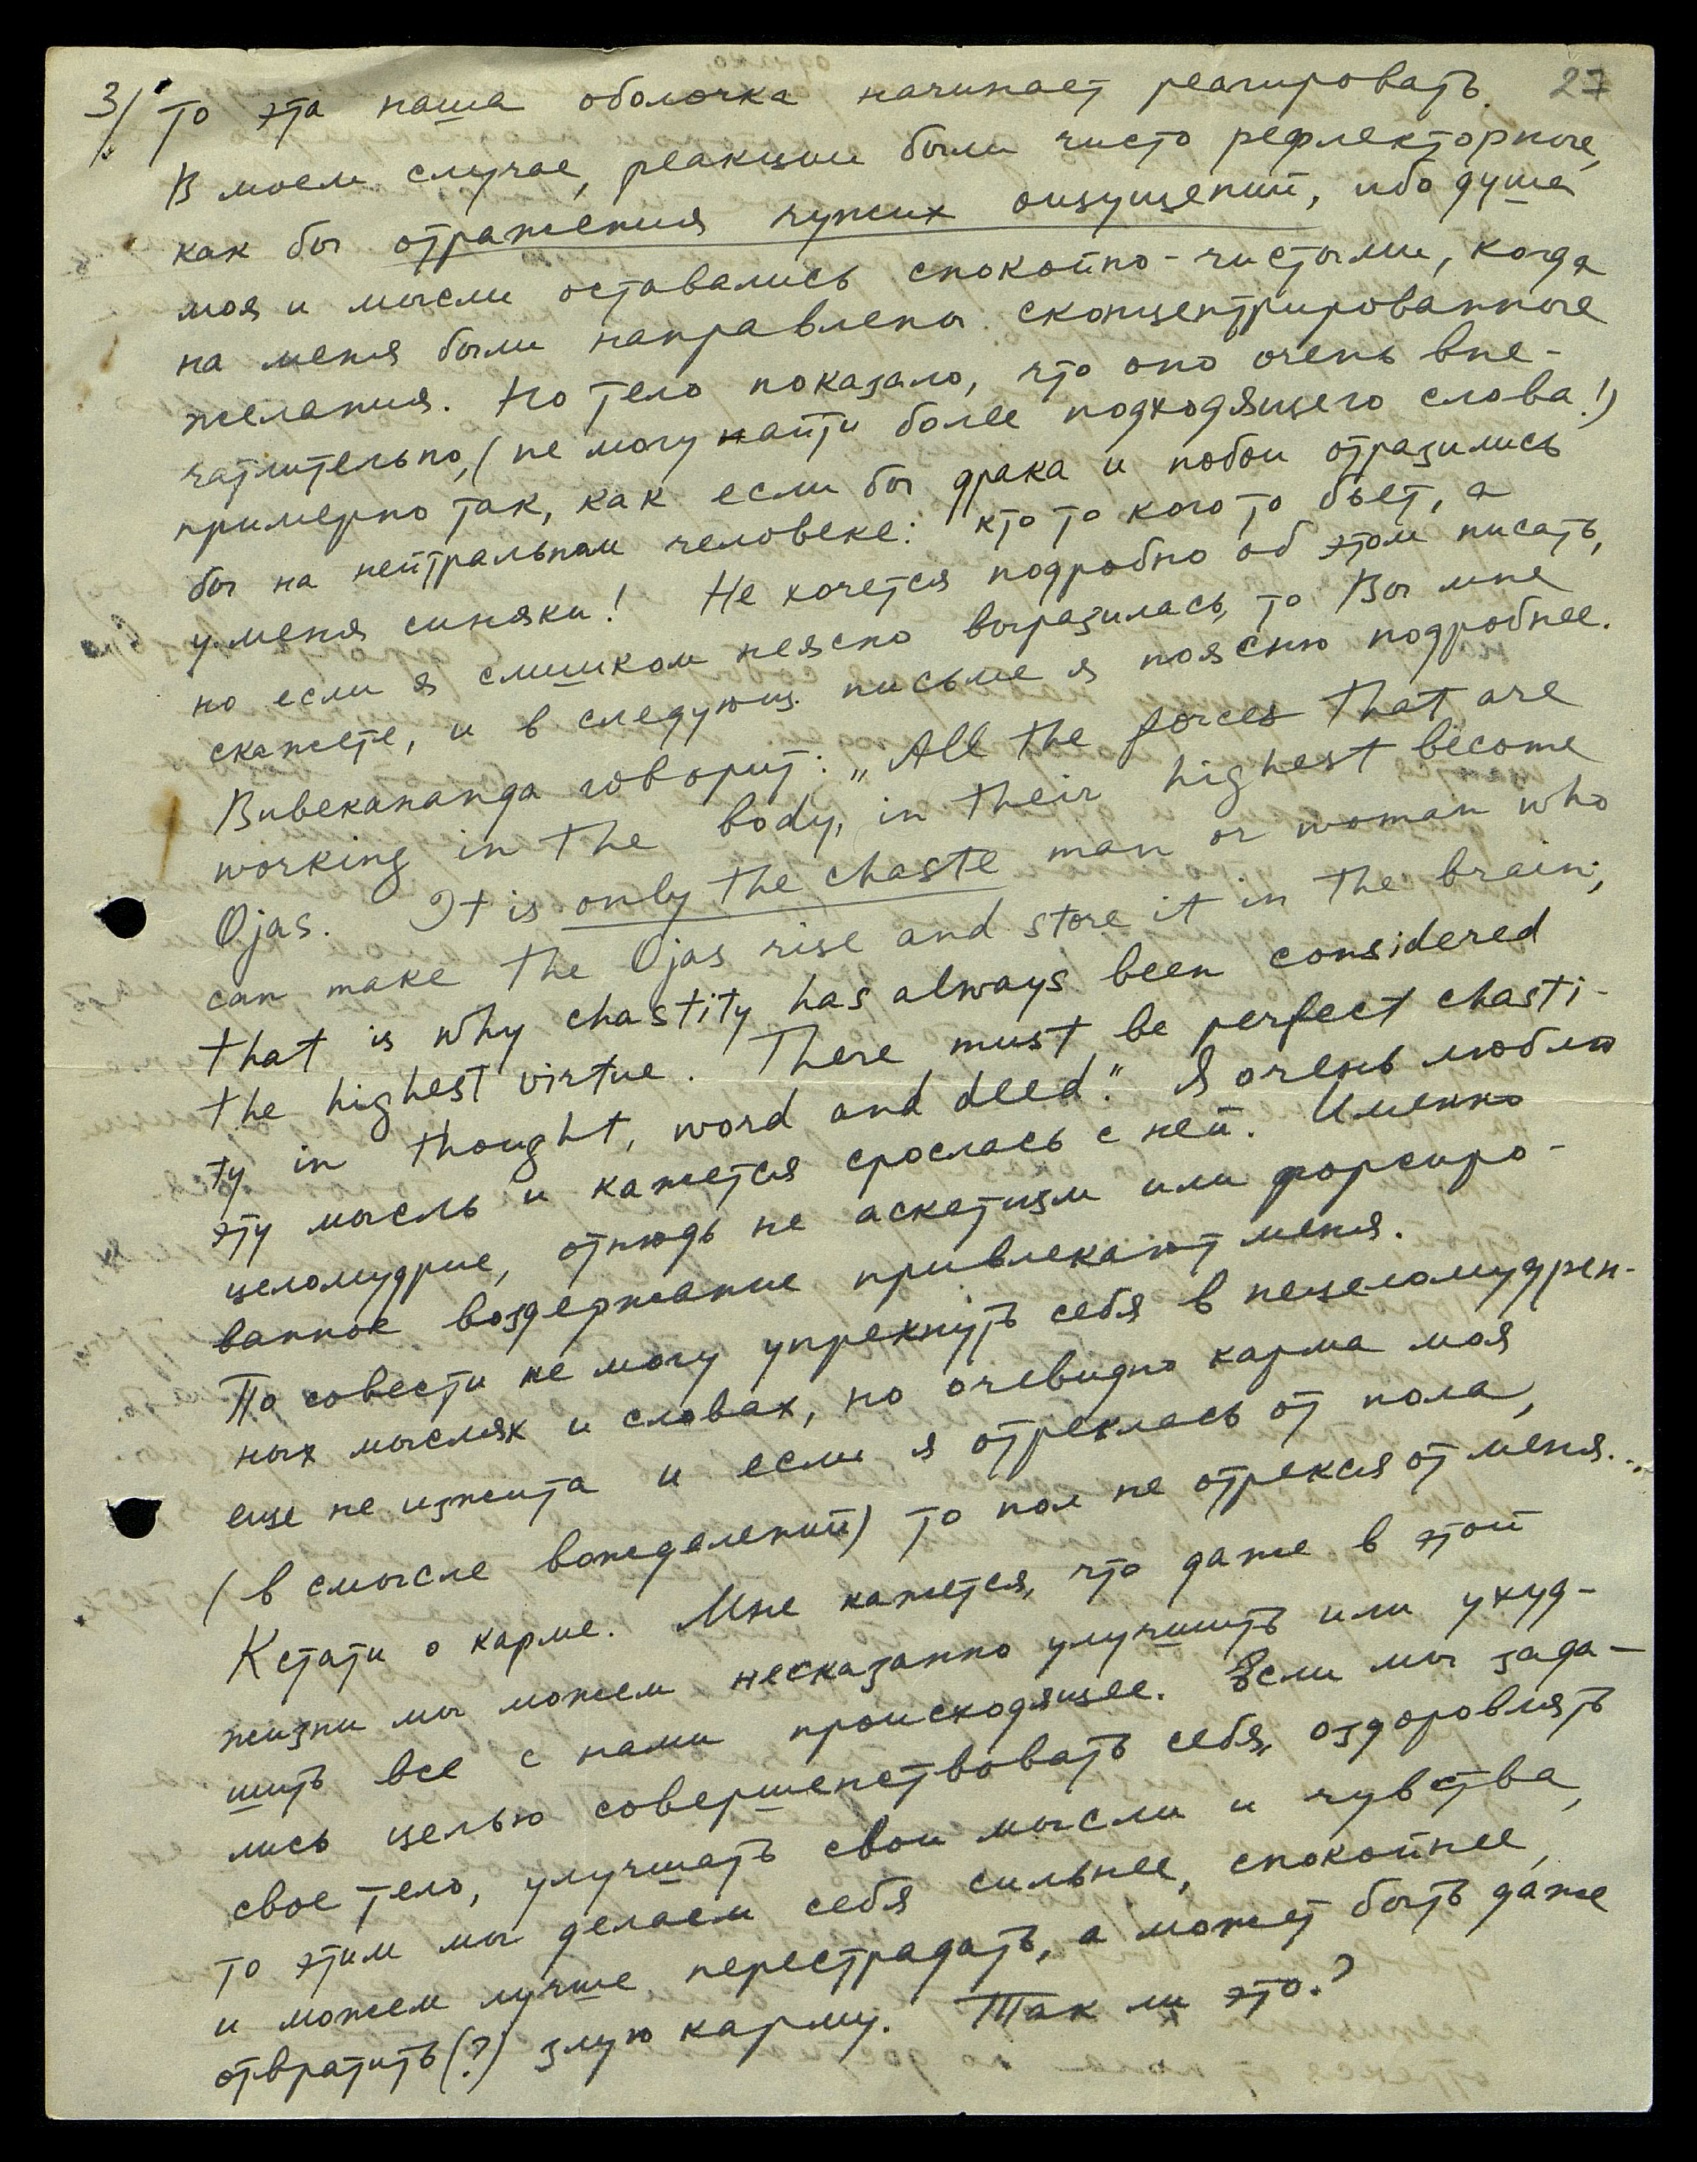 3/ то эта наша оболочка начинает реагировать. 27
В моем случае, реакции были чисто рефлекторные,
как бы отражения чужих ощущений, ибо душа
моя и мысли оставались спокойно-чистыми, когда
на меня были направлены сконцентрированные
желания. Но тело показало, что оно очень впе-
чатлительно, (не могу найти более подходящего слова!)
примерно так, как если бы драка и побои отразились
бы на нейтральном человеке: кто то кого то бьет, а
у меня синяки! Не хочется подробно об этом писать,
но если я слишком неясно выразилась, то Вы мне
скажете, и в следующ. письме я поясню подробнее.
Вивекананда говорит: „All the forces that are
working in the body, in their highest become
Ojas. It is only the chaste man or woman who
can make the Ojas rise and store it in the brain;
that is why chastity has always been considered
the highest virtue. There must be perfect chasti-
ty in thought, word and deed." Я очень люблю
эту мысль и кажется срослась с ней. Именно
целомудрие, отнюдь не аскетизм или форсиро-
ванное воздержание привлекают меня.
По совести не могу упрекнуть себя в нецеломудрен-
ных мыслях и словах, но очевидно карма моя
еще не изжита и если я отреклась от пола,
(в смысле вожделений) то пол не отрекся от меня...
Кстати о карме. Мне кажется, что даже в этой
жизни мы можем несказанно улучшить или ухуд-
шить все с нами происходящее. Если мы зада-
лись целью совершенствовать себя, оздоровлять
свое тело, улучшать свои мысли и чувства,
то этим мы делаем себя сильнее, спокойнее,
и можем лучше перестрадать, а может быть даже
отвратить(?) злую карму. Так ли это?